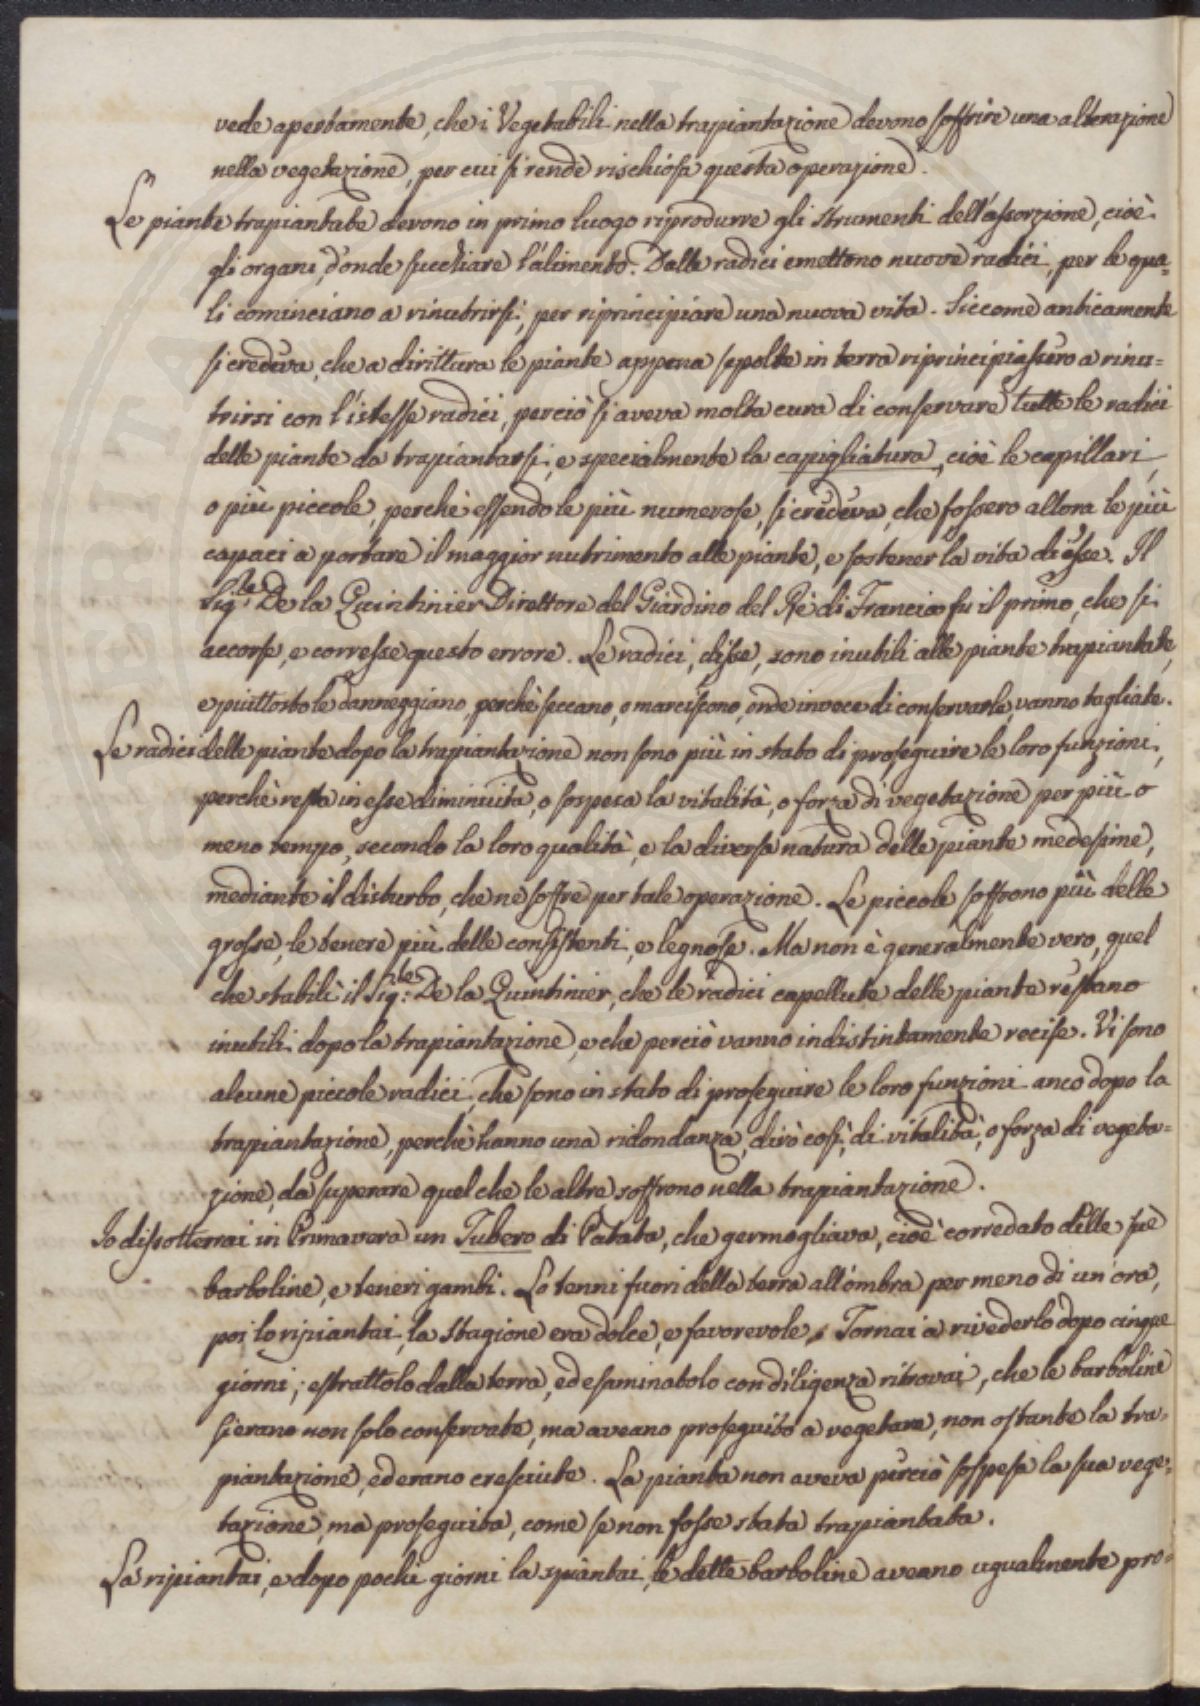 vede apertamente, che i Vegetabili nella trapiantazione devono soffrire una alterazione
nella vegetazione, per cui si rende rischiosa questa operazione.
Le piante trapiantate devono in primo luogo riprodurre gli strumenti dell'assorzione, cioè
gli organi, d'onde succhiare l'alimento. Dalle radici emettono nuove radici, per le qua=
li cominciano a rinutrirsi, per riprincipiare una nuova vita. Siccome anticamente
si credeva, che a dirittura le piante appena sepolte in terra riprincipiassero a rinu=
trirsi con l'istesse radici, perciò si aveva molta cura di conservare tutte le radici
delle piante da trapiantarsi, e specialmente la capigliatura, cioè le capillari,
o più piccole, perchè essendo le più numerose, si credeva, che fossero allora le più
capaci a portare il maggior nutrimento alle piante, e sostener la vita di esse. Il
Sig:re De la Quintinier Direttore del Giardino del Rè di Francia fu il primo, che si
accorse, e corresse questo errore. Le radici, disse, sono inutili alle piante trapiantate,
e piuttosto le danneggiano, perchè seccano, o marciscono, onde invece di conservarle, vanno tagliate.
Le radici delle piante dopo la trapiantazione non sono più in stato di proseguire le loro funzioni,
perchè resta in esse diminuita, o sospesa la vitalità, o forza di vegetazione per più o
meno tempo, secondo la loro qualità, e la diversa natura delle piante medesime,
mediante il disturbo, che ne soffre per tale operazione. Le piccole soffrono più delle
grosse, le tenere più delle consistenti, e legnose. Ma non è generalmente vero, quel
che stabilì il Sig:re De la Quintinier, che le radici capellute delle piante restano
inutili dopo la trapiantazione, e che perciò vanno indistintamente recise. Vi sono
alcune piccole radici, che sono in stato di proseguire le loro funzioni anco dopo la
trapiantazione, perchè hanno una ridondanza, dirò così, di vitalità, o forza di vegeta=
zione, da superare quel che le altre soffrono nella trapiantazione.
Io dissotterrai in Primavera un Tubero di Patata, che germogliava, cioè corredato delle sue
barboline, e teneri gambi. Lo tenni fuori della terra all'ombra per meno di un'ora,
poi lo ripiantai, la stagione era dolce, e favorevole. Tornai a rivederlo dopo cinque
giorni; estrattolo dalla terra, ed esaminatolo con diligenza ritrovai, che le barboline
si erano non solo conservate, ma aveano proseguito a vegetare, non ostante la tra=
piantazione, ed erano cresciute. La pianta non aveva perciò sospesa la sua vege=
tazione, ma proseguita, come se non fosse stata trapiantata.
La ripiantai, e dopo pochi giorni la spiantai, le dette barboline aveano ugualmente pro=